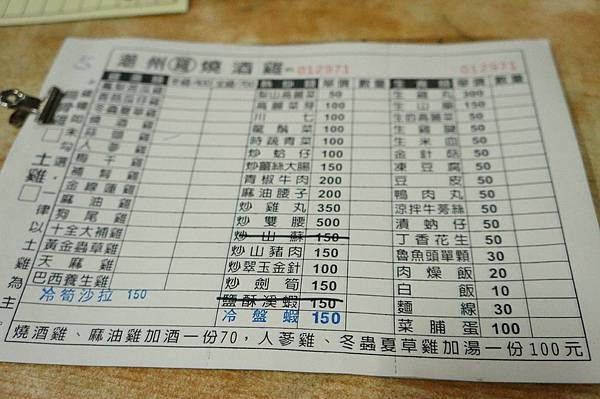 潮州羅燒酒雞 012971 012971
熱炒類 單價 數量 生食類 單價 數量
梨山高麗菜 50 生雞丸 300
高麗菜芽 100 生山藥 150
川七 100 生的高麗菜 50
龍鬚菜 100 生雞腱 50
時蔬青菜 100 生米血 50
炒蛤仔 100 金針菇 50
炒薑絲大腸 150 凍豆腐 50
梅干雞 青椒牛肉 200 豆皮 50
補腎雞 麻油腰子 200 鴨肉丸 50
金線蓮雞 炒雞丸 350 涼拌牛蒡絲 50
麻油雞 炒雙腰 500 漬蚋仔 50
狗尾雞 炒山蘇 150 丁香花生 50
十全大補雞 炒山豬肉 150 魚魯頭單顆 30
黃金蟲草雞 炒翠玉金針 100 肉燥飯 20
天麻雞 炒劍筍 150 白飯 10
巴西養生雞 鹽酥溪蝦 150 麵線 30
冷筍沙拉 150 冷盤蝦 150 菜脯蛋 100
土雞 一律以土雞為主。
燒酒雞、麻油雞加酒一份70,人蔘雞、冬蟲夏草雞加湯一份100元